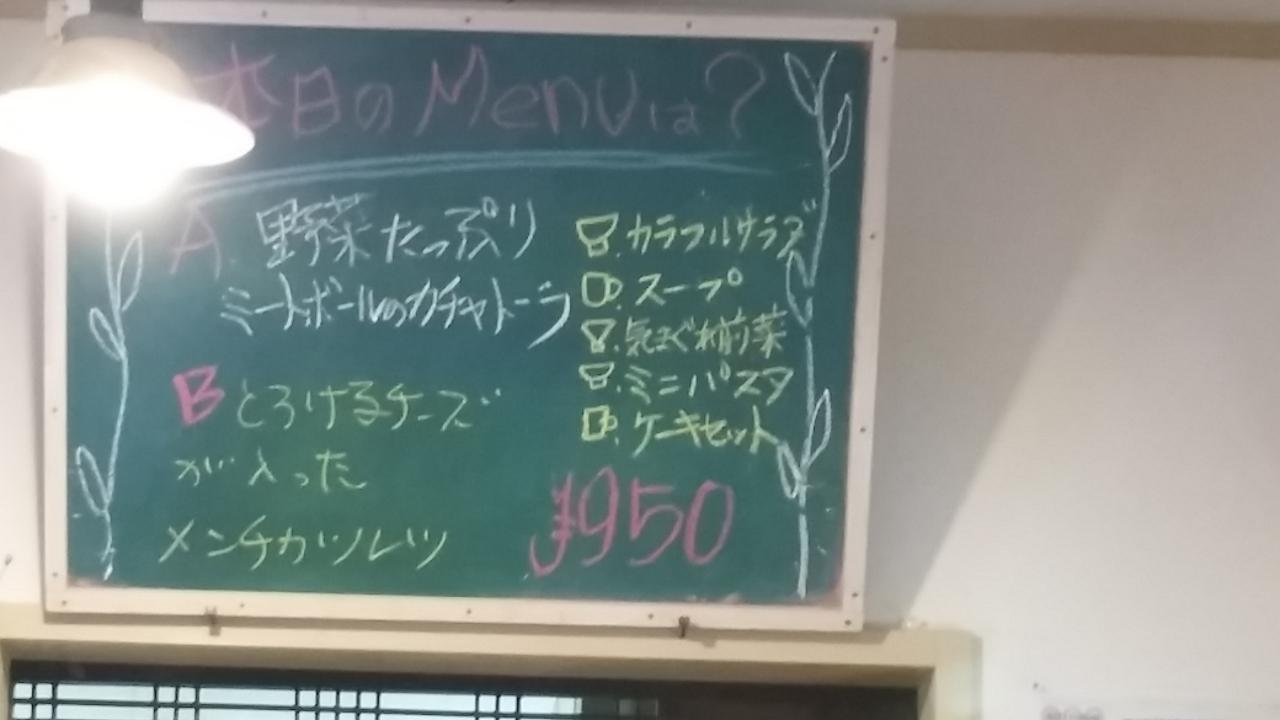 本日のMenuは?
A. 野菜たっぷり
ミートボールのカチャトーラ
B とろけるチーズ
が入った
メンチカツレツ
カラフルサラダ
スープ
気まぐれ前菜
ミニパスタ
ケーキセット
¥950